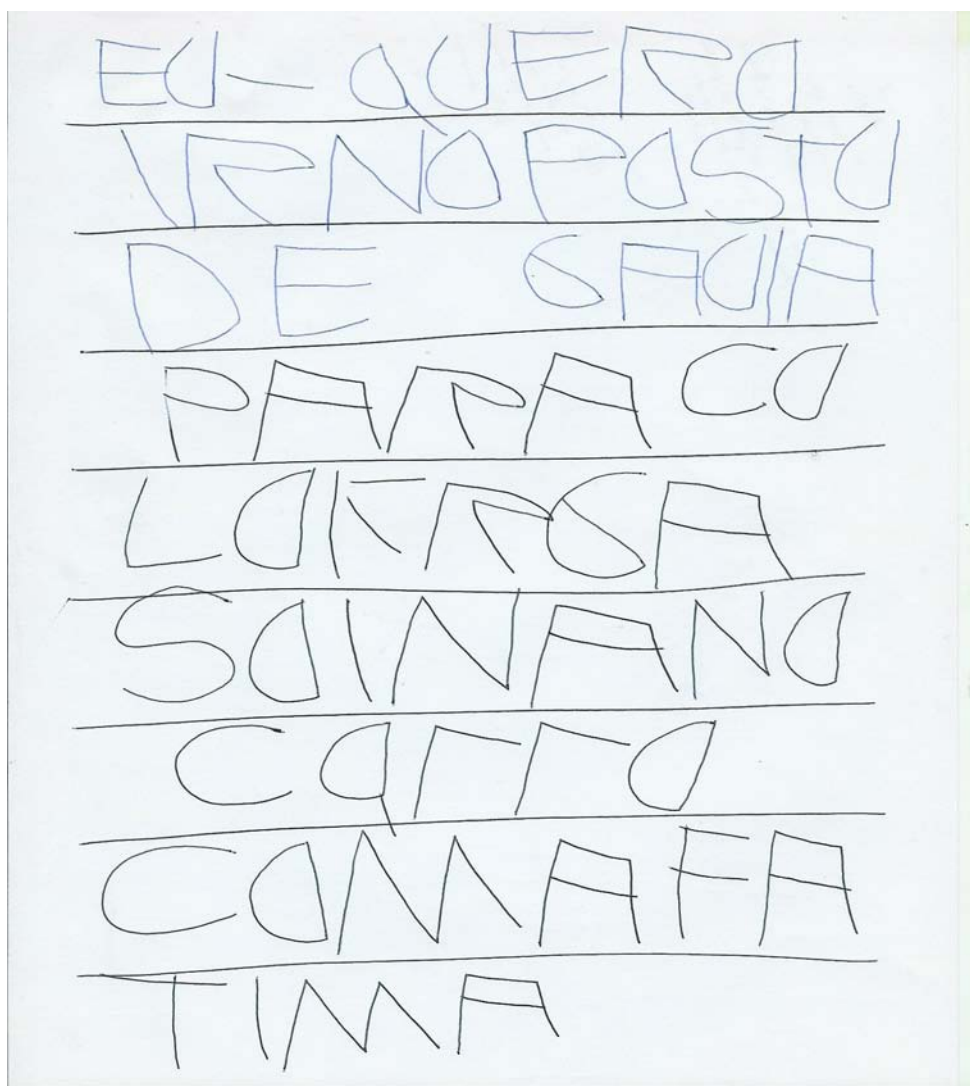 EU - QUERO
IRNO POSTO
DE SAUIA
PARA CO
LOIRSA
SOINANO
CARRO
COMAFA
TIMA